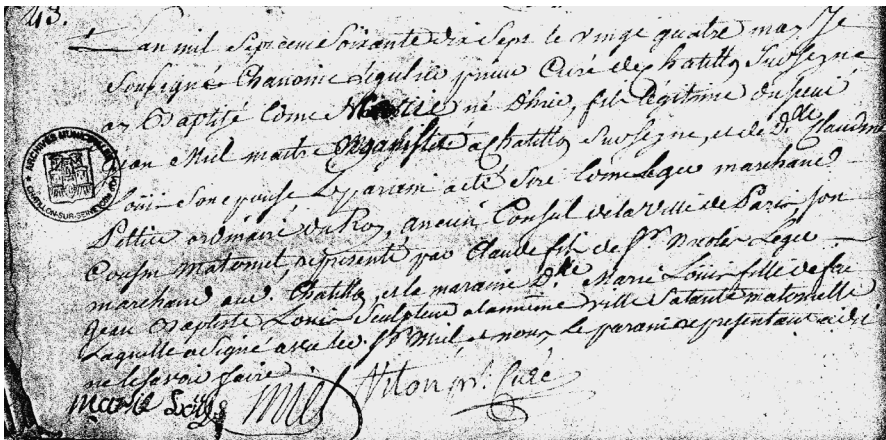 43.
L'an mil sept cent Soixante dix Sept le vingt quatre mars Je
Soussigné Chanoine Régulier prieur Curé de Chatillon Sur Seigne
ai Baptisé Côme Marie né d'hier, fils légitime du Sieur
Jean Miel maitre Organiste a Chatillon Sur Seigne, et de Dlle Claudine
Louis Son épouse Le parain a été Sire Côme Legeu marchand
ordinaire du Roy, ancien Consul de la Ville de Paris Son
Cousin Maternel, représenté par Claude fils de Sr Nicolas Legeu
marchand aud. Chatillon, et la maraine Dlle Marie Louis fille de feu
Jean Baptiste Louis Sculpteur a la même ville Sa tante maternelle
Laquelle a Signé avec led. Sr Miel et nous, Le parain représentant a dit
ne le Savoir faire
Marie Louis Miel Viton pr. Curé
ARCHIVES MUNICIPALES
CHATILLON-SUR-SEINE